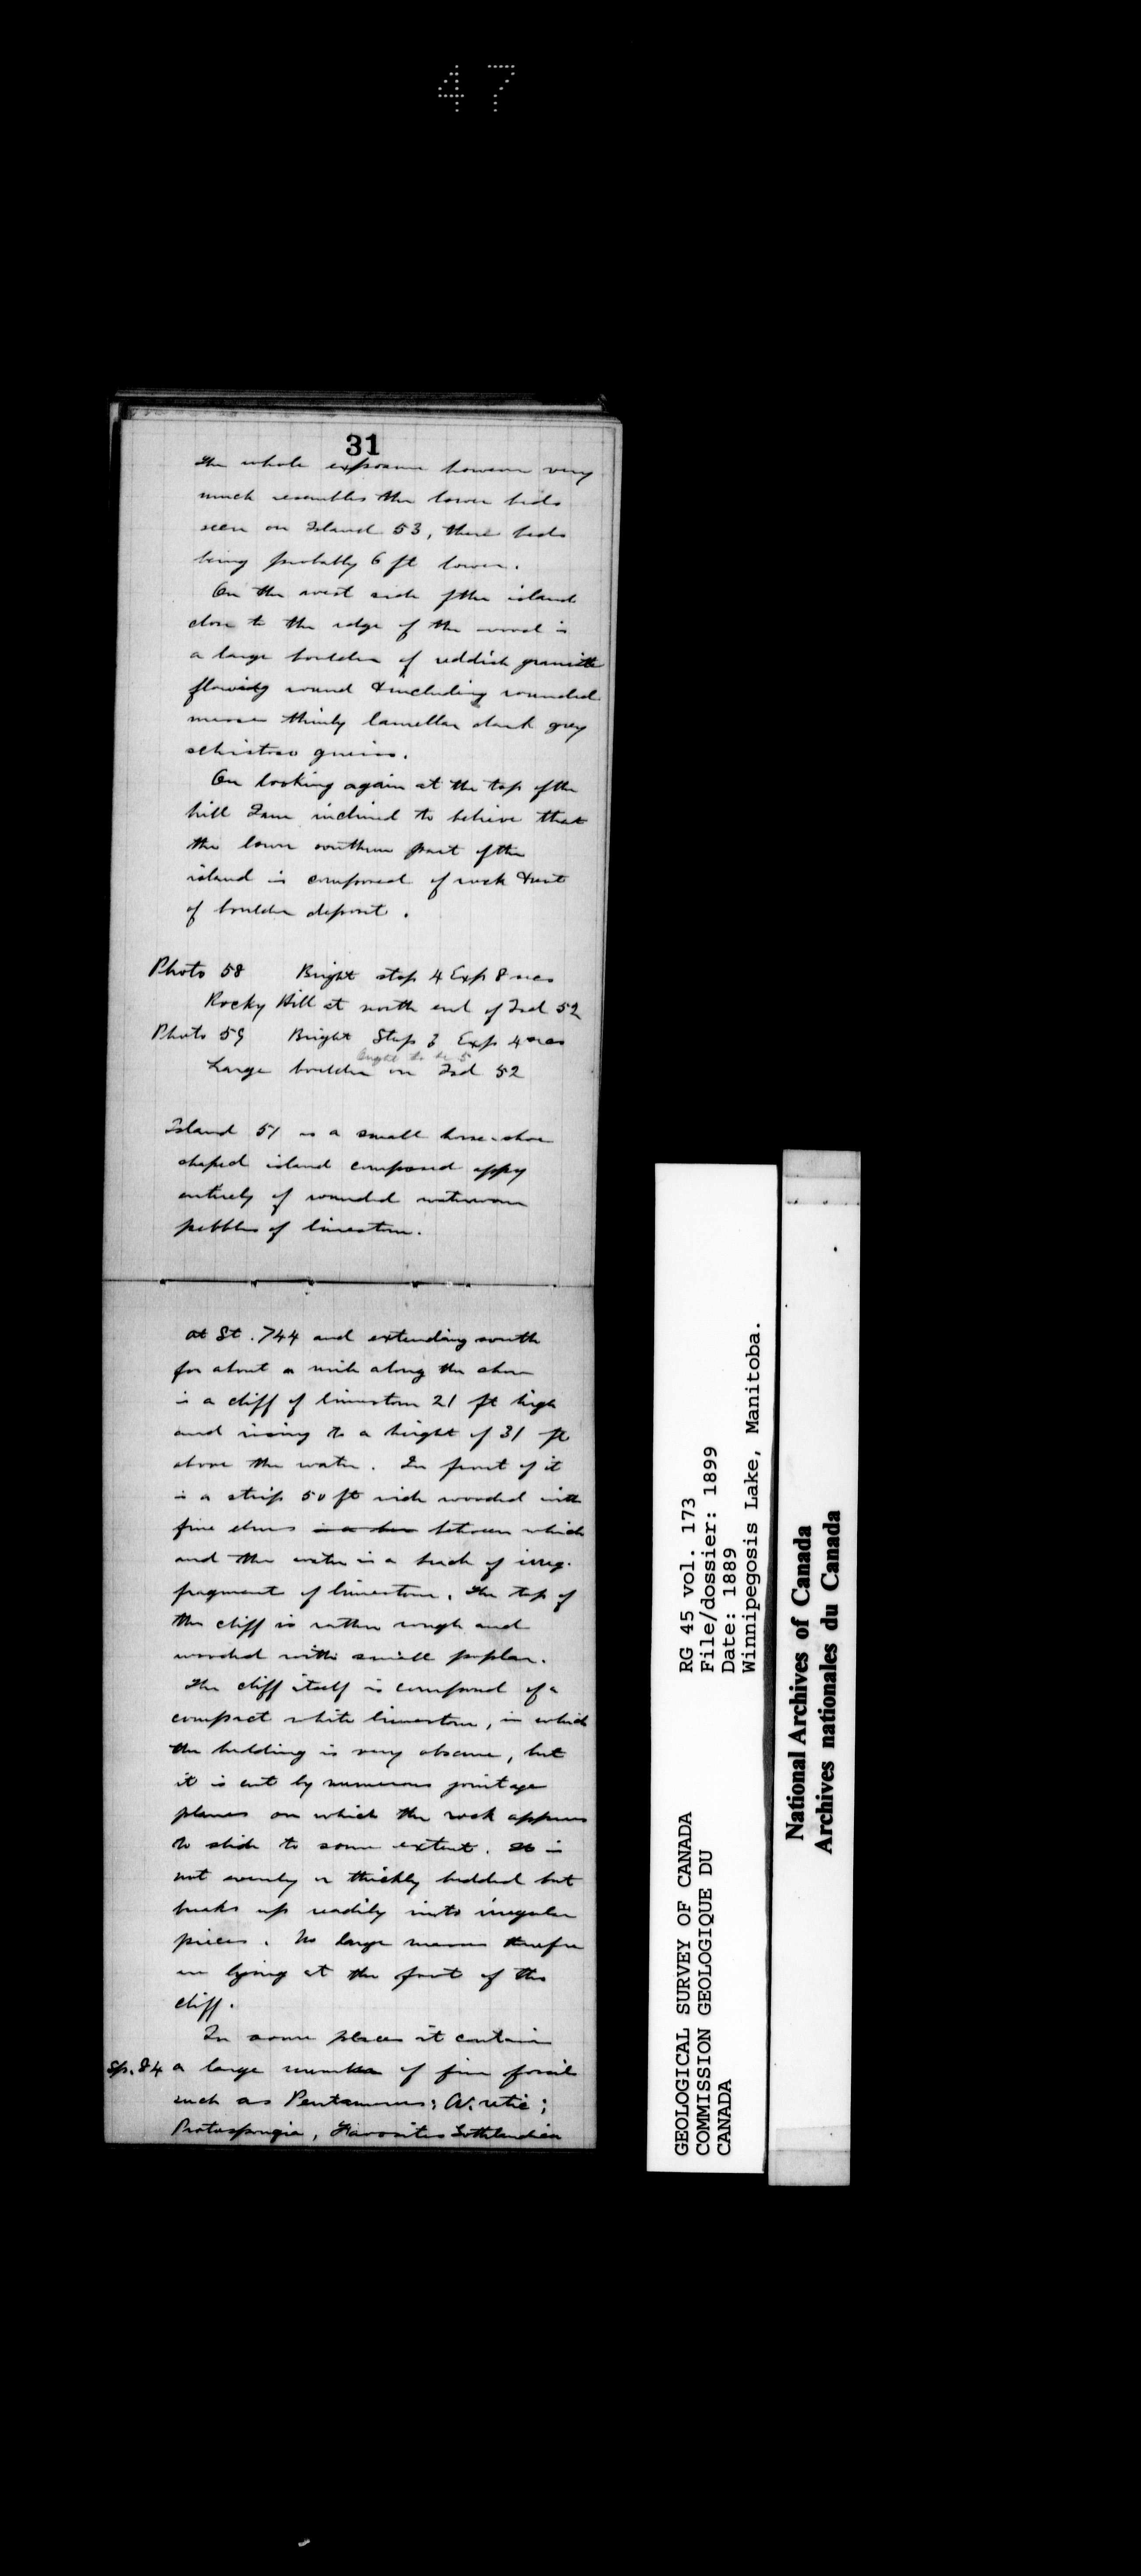 47
31
The whole exposure however very
much resembles the lower beds
seen on Island 53, these beds
being probably 6 ft lower.
On the west side of the island
close to the edge of the wood is
a large boulder of reddish granite
flowing round & including rounded
masses thinly lamellar dark grey
schistose gneiss.
On looking again at the top of the
hill I am inclined to believe that
the lower southern part of the
island is composed of rock & not
of boulder deposit.
Photo 58 Bright stop 4 Exp 8 secs
Rocky Hill at north end of Isd 52
Photo 59 Bright Stop 3 Exp 4 secs
ought to be 5
Large boulder on Isd 52
Island 51 is a small horse-shoe
shaped island composed appy
entirely of rounded waterworn
pebbles of limestone.
At St. 744 and extending south
for about a mile along the shore
is a cliff of limestone 21 ft high
and rising to a height of 31 ft
above the water. In front of it
is a strip 50 ft wide wooded with
fine elms between which
and the water is a beach of irreg.
fragment of limestone. The top of
the cliff is rather rough and
wooded with small poplar.
The cliff itself is composed of a
compact white limestone, in which
the bedding is very obscure, but
it is cut by numerous jointage
planes on which the rock appears
to slide to some extent. It is
not evenly or thickly bedded but
breaks up readily into irregular
pieces. No large masses therefore
are lying at the foot of the
cliff.
In some places it contains
Sp. 84 a large number of fine fossils
such as Pentamerus; A. retic;
Protospongia, Favosites Gothlandica
GEOLOGICAL SURVEY OF CANADA
COMMISSION GEOLOGIQUE DU
CANADA
RG 45 vol. 173
File/dossier: 1899
Date: 1889
Winnipegosis Lake, Manitoba.
National Archives of Canada
Archives nationales du Canada